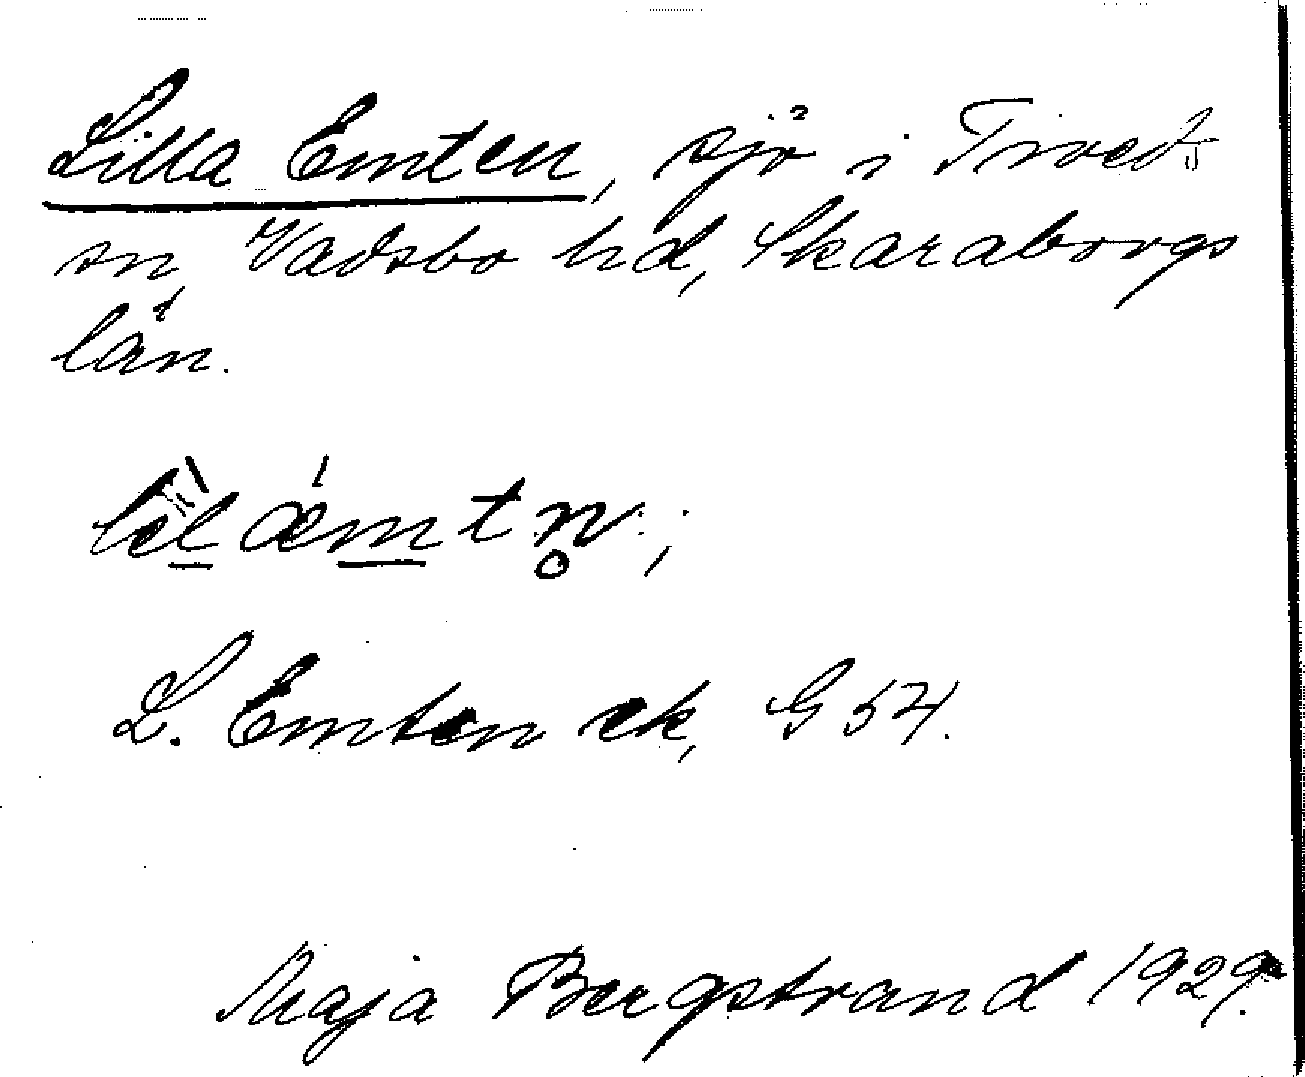 Lilla Emten, sjö i Tived
sn, Vadsbo hd, Skaraborgs
län.
L. Emten ek, G 54.
Maja Bergstrand 1929.